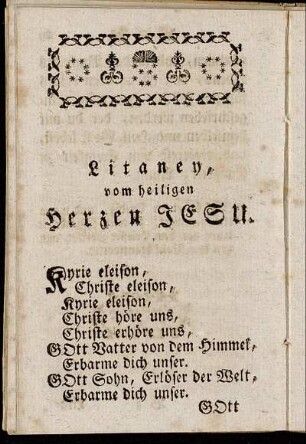 Litaney,
vom heiligen
Herzen JESU.
Kyrie eleison,
Christe eleison,
Kyrie eleison,
Christe höre uns,
Christe erhöre uns,
GOtt Vatter von dem Himmel,
Erbarme dich unser.
GOtt Sohn, Erlöser der Welt,
Erbarme dich unser.
GOtt